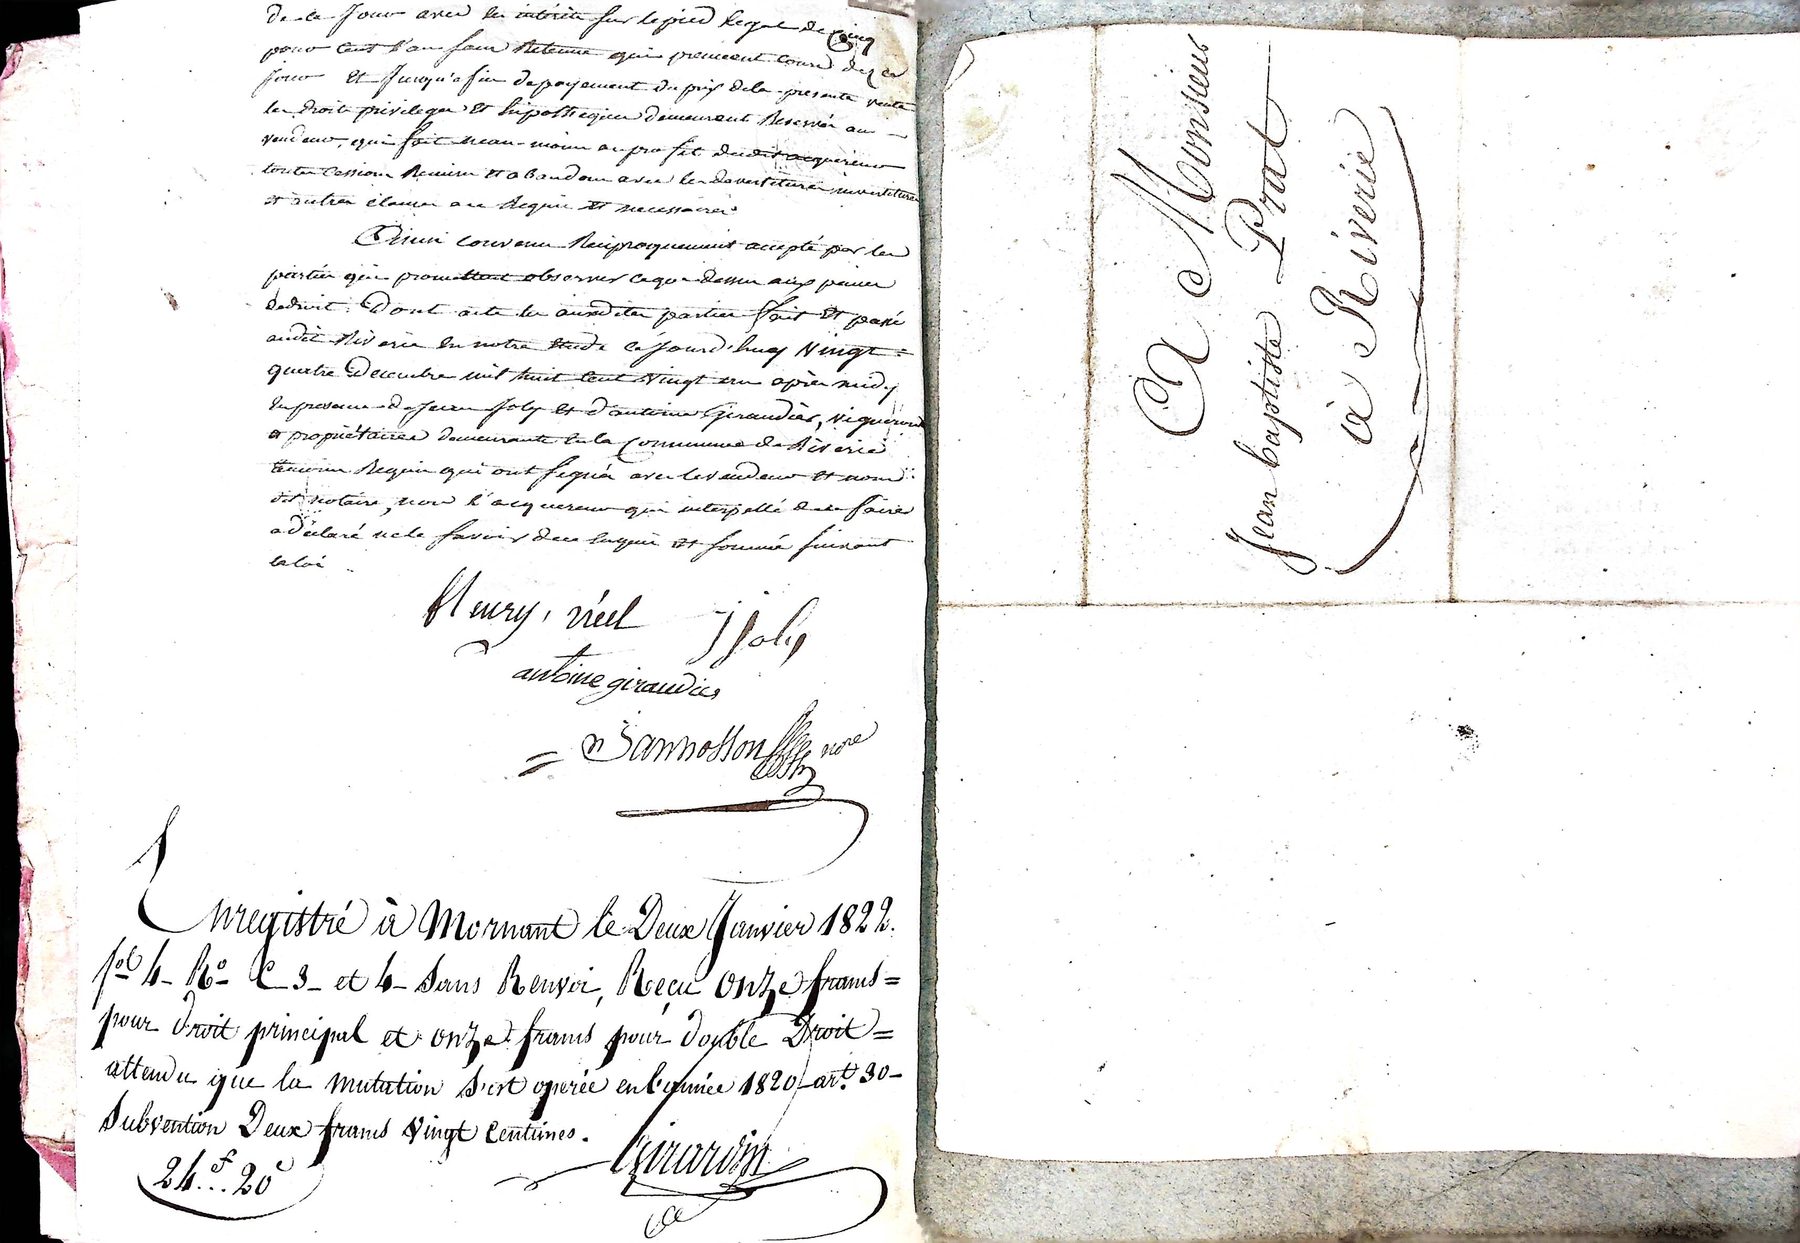 de ce Jour avec les intérêts sur le pied légal de cinq
pour cent l'an sans Retenue qui prennent cours dez ce
jour et Jusqu'a fin de payement du prix dela presente vente
les droits privileges et hipotheques demeurent Reservés au
vendeur, qui fait neanmoins au profit dudit acquereur
toutes cessions Remises et abandons avec les devestitures investitures
et autres clauses au Requis et necessaires
Ainsi convenu Reciproquement accepté par les
parties qui promettent observer ce que dessus aux peines
de droit. Dont acte les susdites parties fait et passé
audit Riverie en notre étude ce jourd'huy Vingt =
quatre Decembre mil huit cent vingt un après midy
En presence de Jean Joly et d'antoine Giraudier, Vignerons
et propriétaires demeurants en la Commune de Riverie
temoins Requis qui ont signés avec le vendeur et nous
dit notaire, non l'acquereur qui interpellé de ce faire
a déclaré ne le savoir de ce enquis et sommé suivant
la loi
fleury, viel
j joly
antoine giraudier
n Jannosson nore
Enregistré à Mornant le Deux Janvier 1822.
fol 4- Ro C 3- et 4- Sans Renvoi, Reçu onze francs =
pour droit principal et onze francs pour double Droit =
attendu que la mutation s'est operée en l'année 1820 art. 30-
Subvention Deux francs vingt centimes.
24f..20c
Girardin
A Monsieur
Jean baptiste Prat
à Riverie